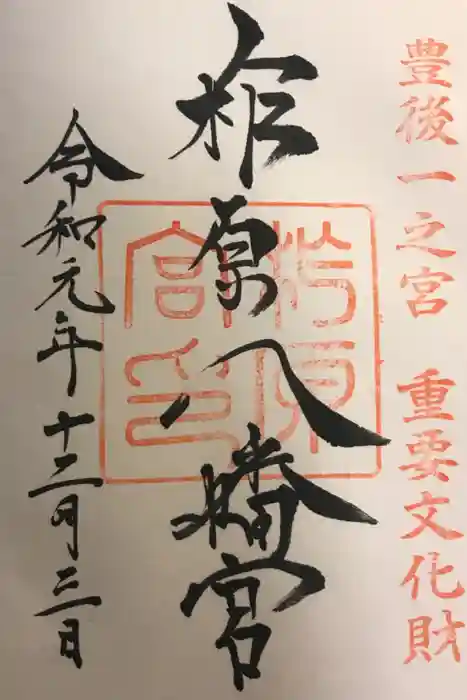 豊後一之宮 重要文化財
柞原八幡宮
柞原
宮印
令和元年十二月三日